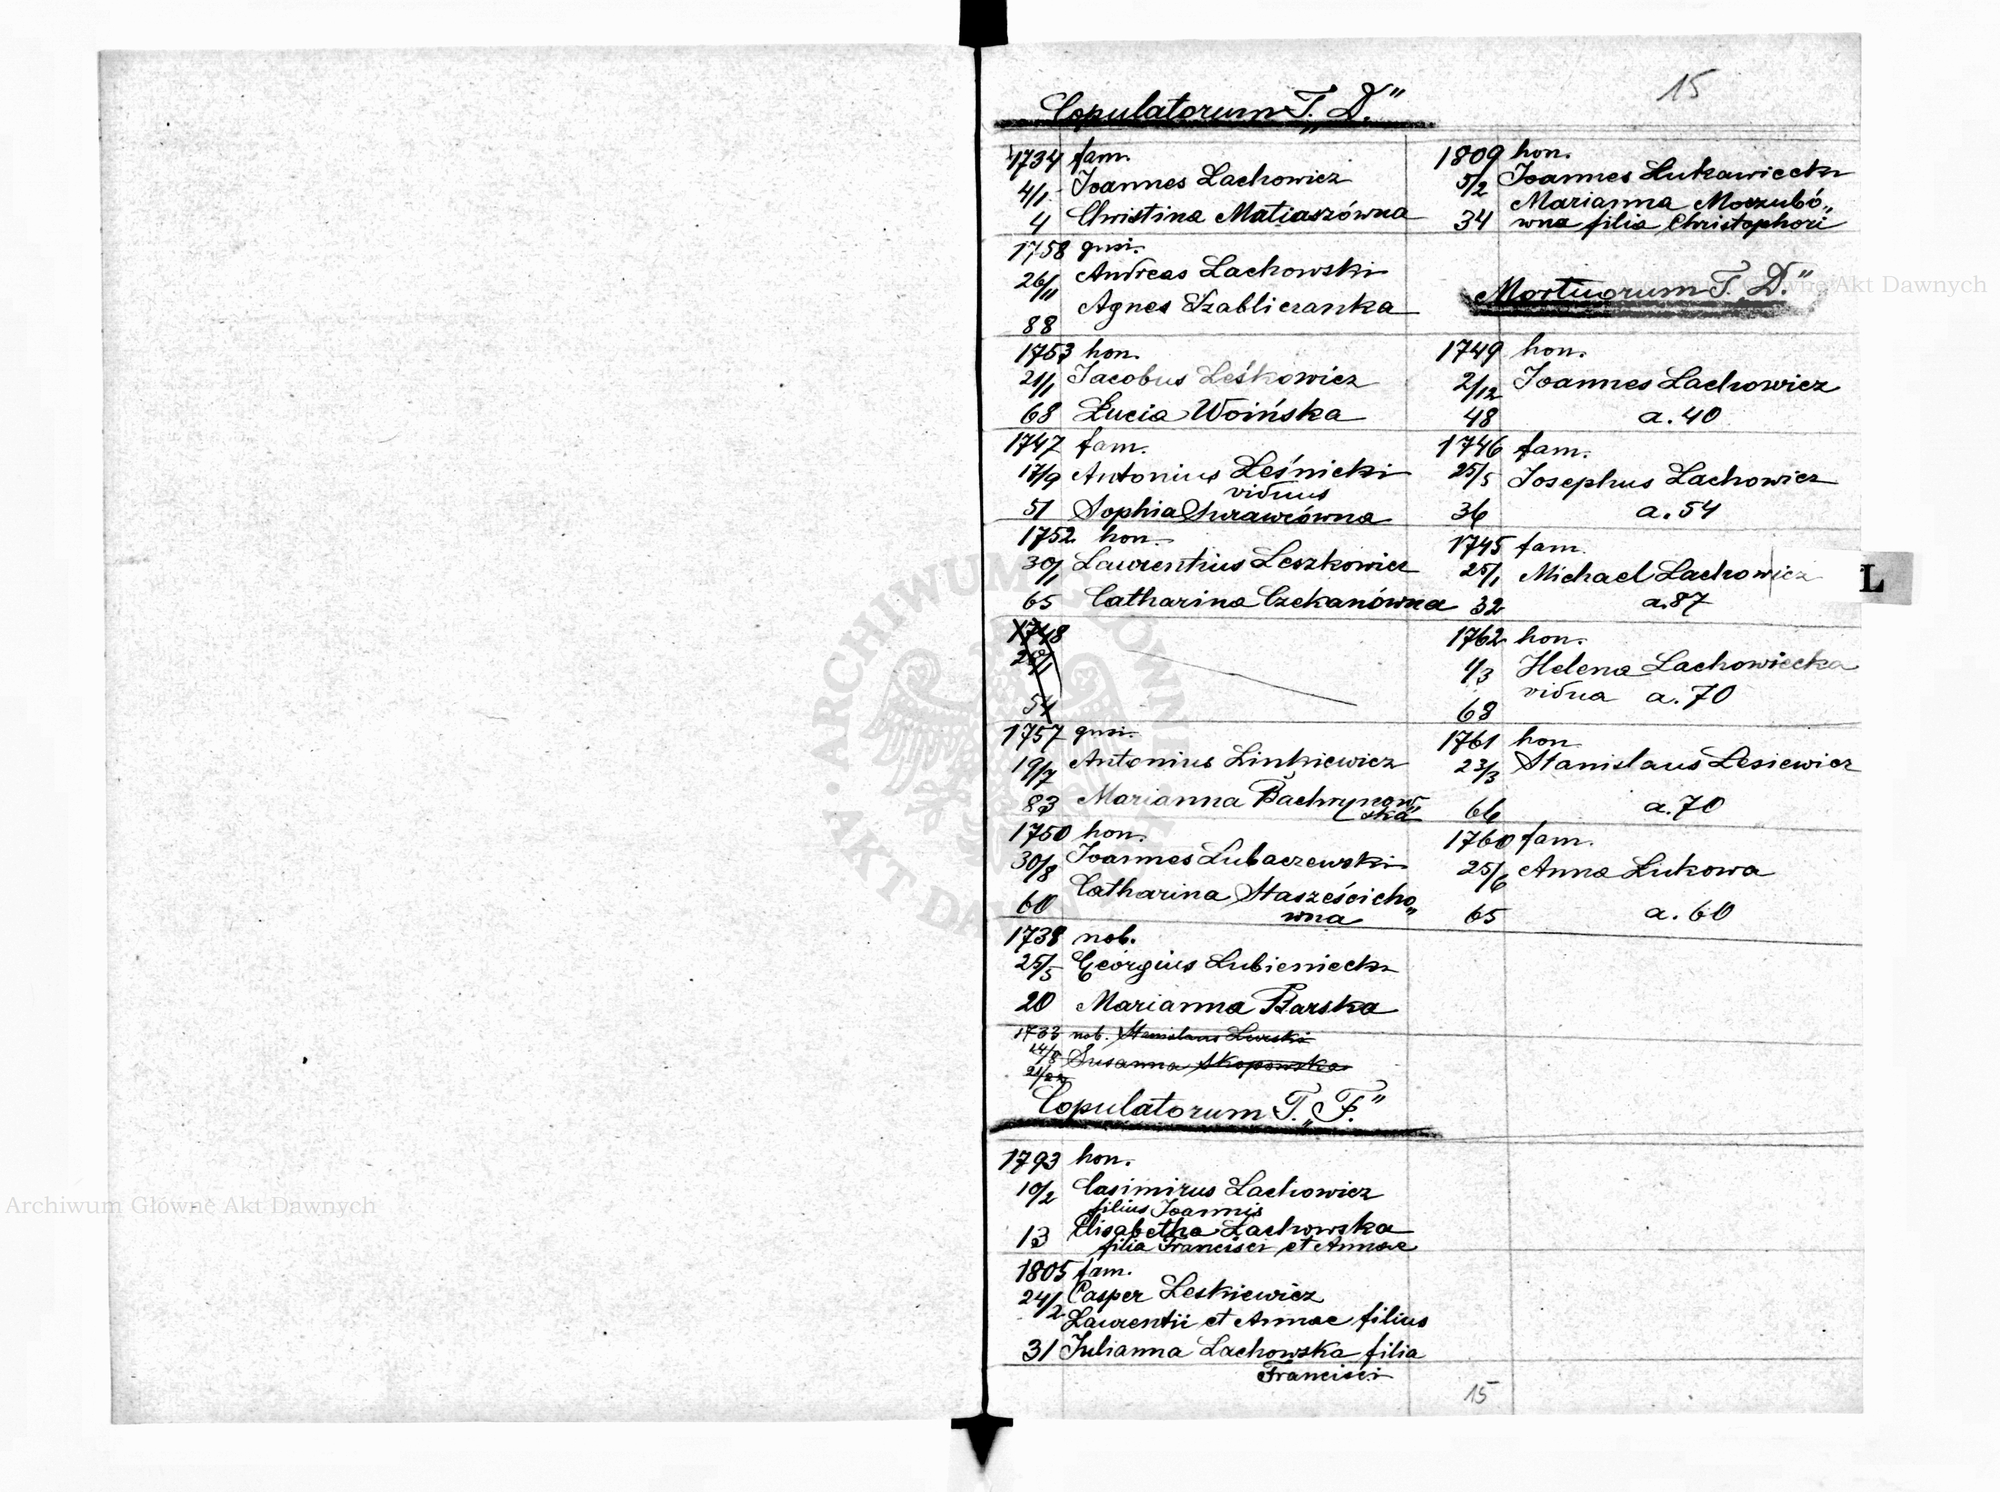 15
Copulatorum T. „D.”
1734 fam.
4/1 Joannes Lachowicz
4 Christina Matiaszówna
1758 gnsi.
26/11 Andreas Lachowski
Agnes Szablicranka
88
1753 hon.
21/1 Jacobus Leśkowicz
68 Łucia Woińska
1747 fam.
17/9 Antonius Leśnicki
viduus
51 Sophia Szrawcówna
1752 hon.
30/1 Laurentius Leszkowicz
65 Catharina Czekanówna
1748
28/1
54
1757 gnsi.
19/7 Antonius Linkiewicz
83 Marianna Bachrynow„
ska
1750 hon.
30/8 Joannes Lubaczewski
Catharina Stasześcicho„
60 wna
1738 nob.
25/5 Georgius Lubieniecki
20 Marianna Barska
1733 nob. Stanislaus Lurski
14/8 Susanna Skopowska
Copulatorum T. „F.”
1793 hon.
10/2 Casimirus Lachowicz
filius Joannis
13 Elisabetha Lachowska
filia Francisci et Annae
1805 fam.
24/2 Casper Leskiewicz
Laurentii et Annae filius
31 Julianna Lachowska filia
Francisci
1809 hon.
5/2 Joannes Lukawiecki
Marianna Moszubó„
34 wna filia Christophori
Mortuorum T. „D.”
1749 hon.
2/12 Joannes Lachowicz
48 a. 40
1746 fam.
25/5 Josephus Lachowicz
36 a. 54
1745 fam.
25/1 Michael Lachowicz
32 a. 87
1762 hon.
1/3 Helena Lachowiecka
vidua a. 70
68
1761 hon.
23/3 Stanislaus Lesiewicz
66 a. 70
1760 fam.
25/6 Anna Lukowa
65 a. 60
15
L
Archiwum Główne Akt Dawnych
Archiwum Główne Akt Dawnych
ARCHIWUM GŁÓWNE AKT DAWNYCH